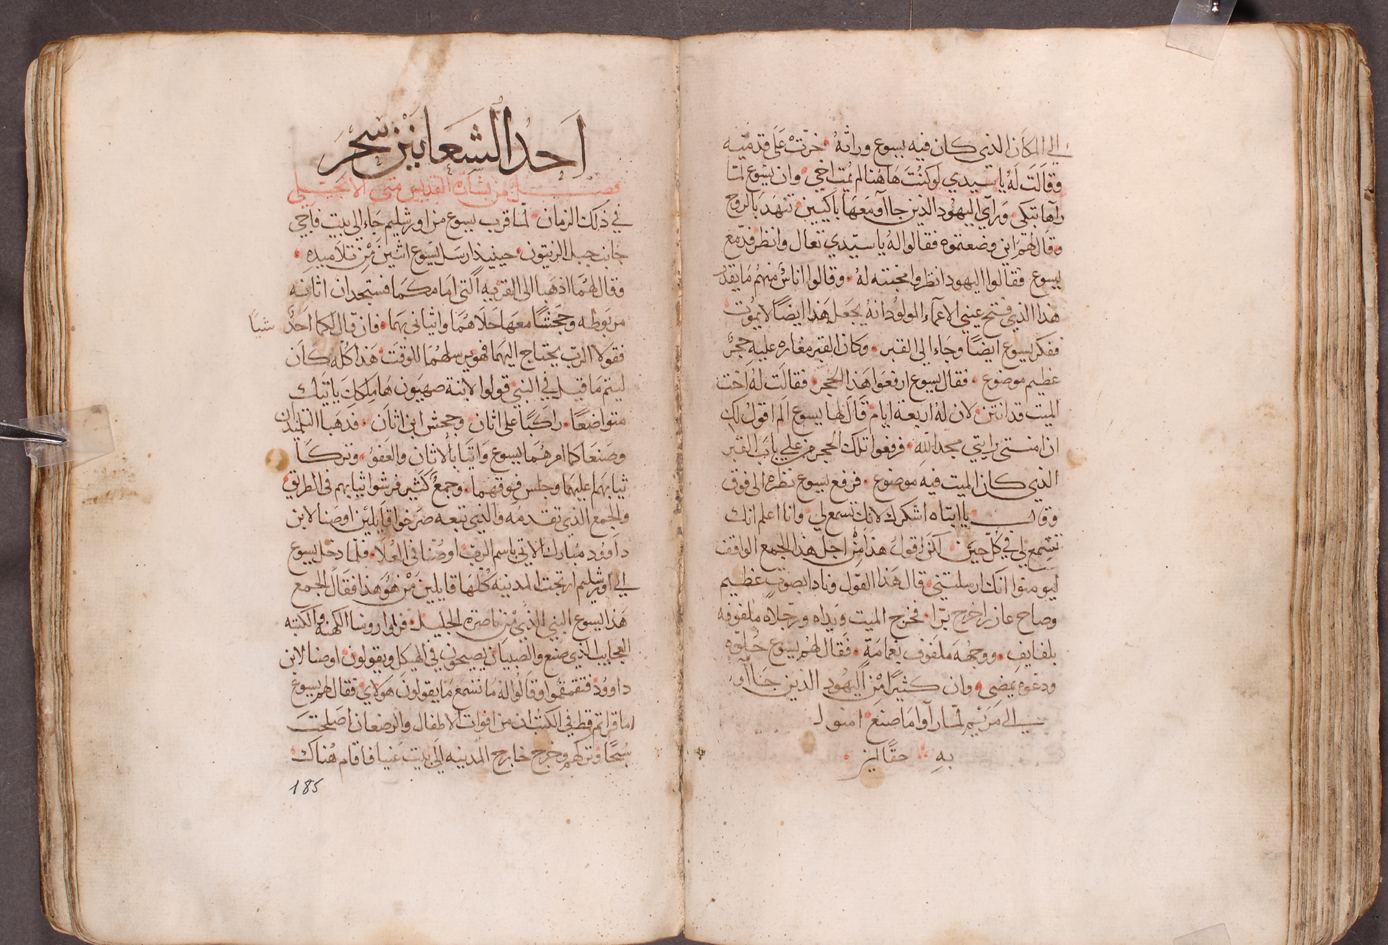 الى المكان الذي كان فيه يسوع وراته خرت على قدميه
وقالت له يا سيدي لو كنت هاهنا لم يمت اخي وان يسوع لما
راها تبكي وراي اليهود الذين جاآو معها باكيين تنهد بالروح
وقال لهم اين وضعتموه فقالوا له يا سيدي تعال وانظر فدمع
يسوع فقالوا اليهود انظروا محبته له وقالوا اناس منهم ما يقدر
هذا الذي فتح عيني الاعما المولود انه يجعل هذا ايضا لا يموت
ففكر يسوع ايضا وجاء الى القبر وكان القبر مغاره عليه حجر
عظيم موضوع فقال يسوع ارفعوا هذا الحجر فقالت له اخت
الميت قد انتن لان له اربعة ايام قال لها يسوع الم اقول لك
ان امنتي رايتي مجد الله فرفعوا تلك الحجر من على باب القبر
الذي كان الميت فيه موضوع فرفع يسوع نظره الى فوق
وقال يا ابتاه اشكرك لانك تسمع لي وانا اعلم انك
تسمع لي في كل حين لكن اقول هذا من اجل هذا الجمع الواقف
ليومنوا انك ارسلتني قال هذا القول ونادا بصوت عظيم
وصاح عازر اخرج برا فخرج الميت ويداه ورجلاه ملفوفه
بلفايف ووجهه ملفوف بعمامة فقال لهم يسوع حلوه
ودعوه يمضي وان كثيرا من اليهود الذين جاآو
الى مريم لما راوا ما صنع امنوا
به حقا
احد الشعانين سحر
فصل من بشارة القديس متى الانجيلي
في ذلك الزمان لما قرب يسوع من اورشليم جاء الى بيت فاجي
جانب جبل الزيتون حينيذ ارسل يسوع اثنين من تلاميذه
وقال لهما اذهبا الى القريه التي امامكما فستجدان اتانه
مربوطه وجحشا معها حلاهما واتياني بهما فان قال لكما احد شيا
فقولا الرب يحتاج اليهما فهو يرسلهما للوقت هذا كله كان
ليتم ما قيل في النبي قولوا لابنة صهيون ها ملكك ياتيك
متواضعا راكبا على اتان وجحش ابن اتان فذهبا التلميذان
وصنعا كما امرهما يسوع واتيا بالاتان والعفو وتركا
ثيابهما عليهما وجلس فوقهما وجمع كثير فرشوا ثيابهم في الطريق
والجمع الذي تقدمه والذي تبعه صرخوا قايلين اوصنا لابن
داوود مبارك الاتي باسم الرب اوصنا في العلا فلما دخل يسوع
الى اورشليم ارتجت المدينه كلها قايلين من هو هذا فقال الجمع
هذا يسوع النبي الذي من ناصرة الجليل فراوا روسا الكهنه والكتبه
العجايب الذي صنع والصبيان يصيحون في الهيكل ويقولون اوصنا لابن
داوود فتقمقموا وقالوا له ما تسمع ما يقولون هولاي فقال لهم يسوع
اما قراتم قط في الكتاب ان من افواه الاطفال والرضعان اصلحت
سبحا وتركهم وخرج خارج المدينه الى بيت عنيا فاقام هناك
185